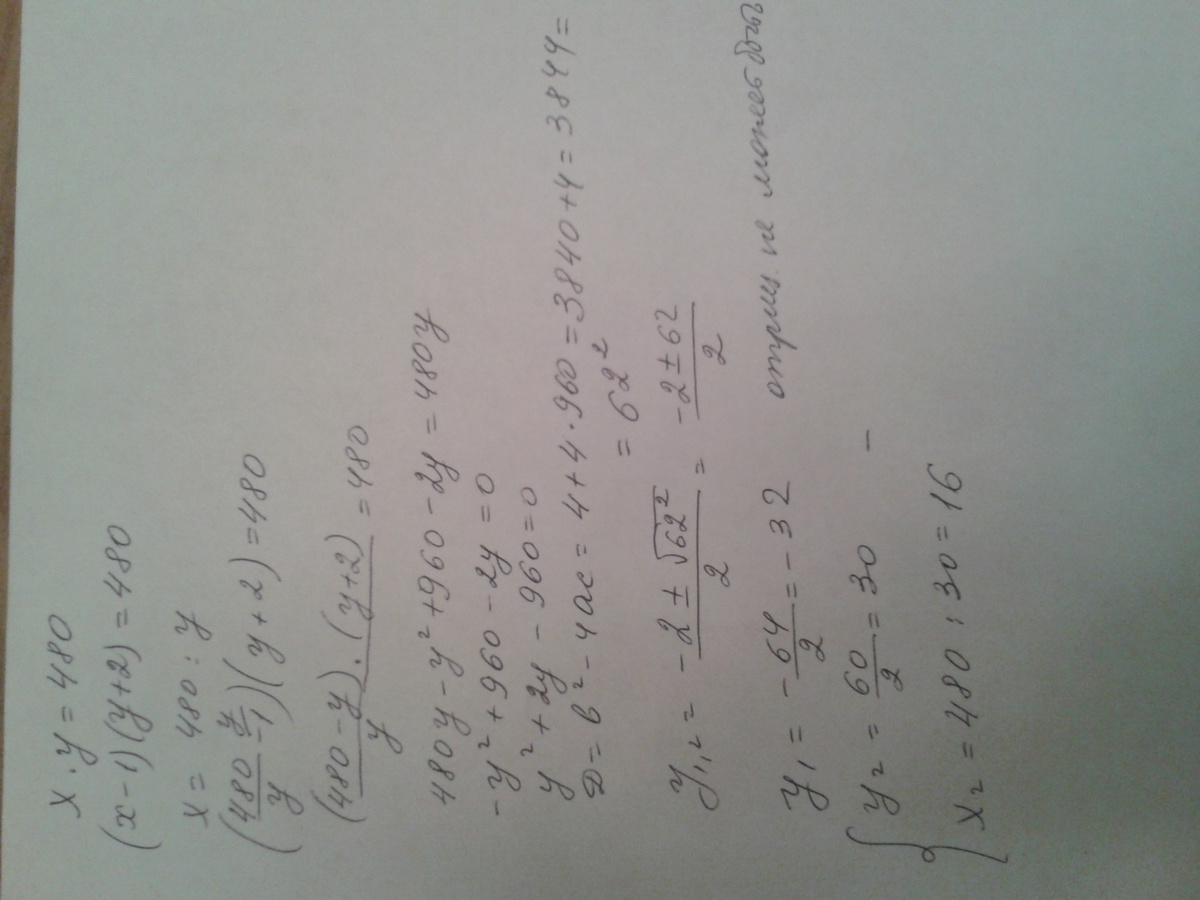 x · y = 480
(x-1)(y+2) = 480
x = 480 : y
(480/y - y/1)(y+2) = 480
(480-y)·(y+2)/y = 480
480y - y² + 960 - 2y = 480y
-y² + 960 - 2y = 0
y² + 2y - 960 = 0
D = b² - 4ac = 4+4·960 = 3840+4 = 3844 =
= 62²
y₁,₂ = -2 ± √62²/2 = -2±62/2
y₁ = -64/2 = -32 отриц. не может быть
y₂ = 60/2 = 30 —
x₂ = 480 : 30 = 16